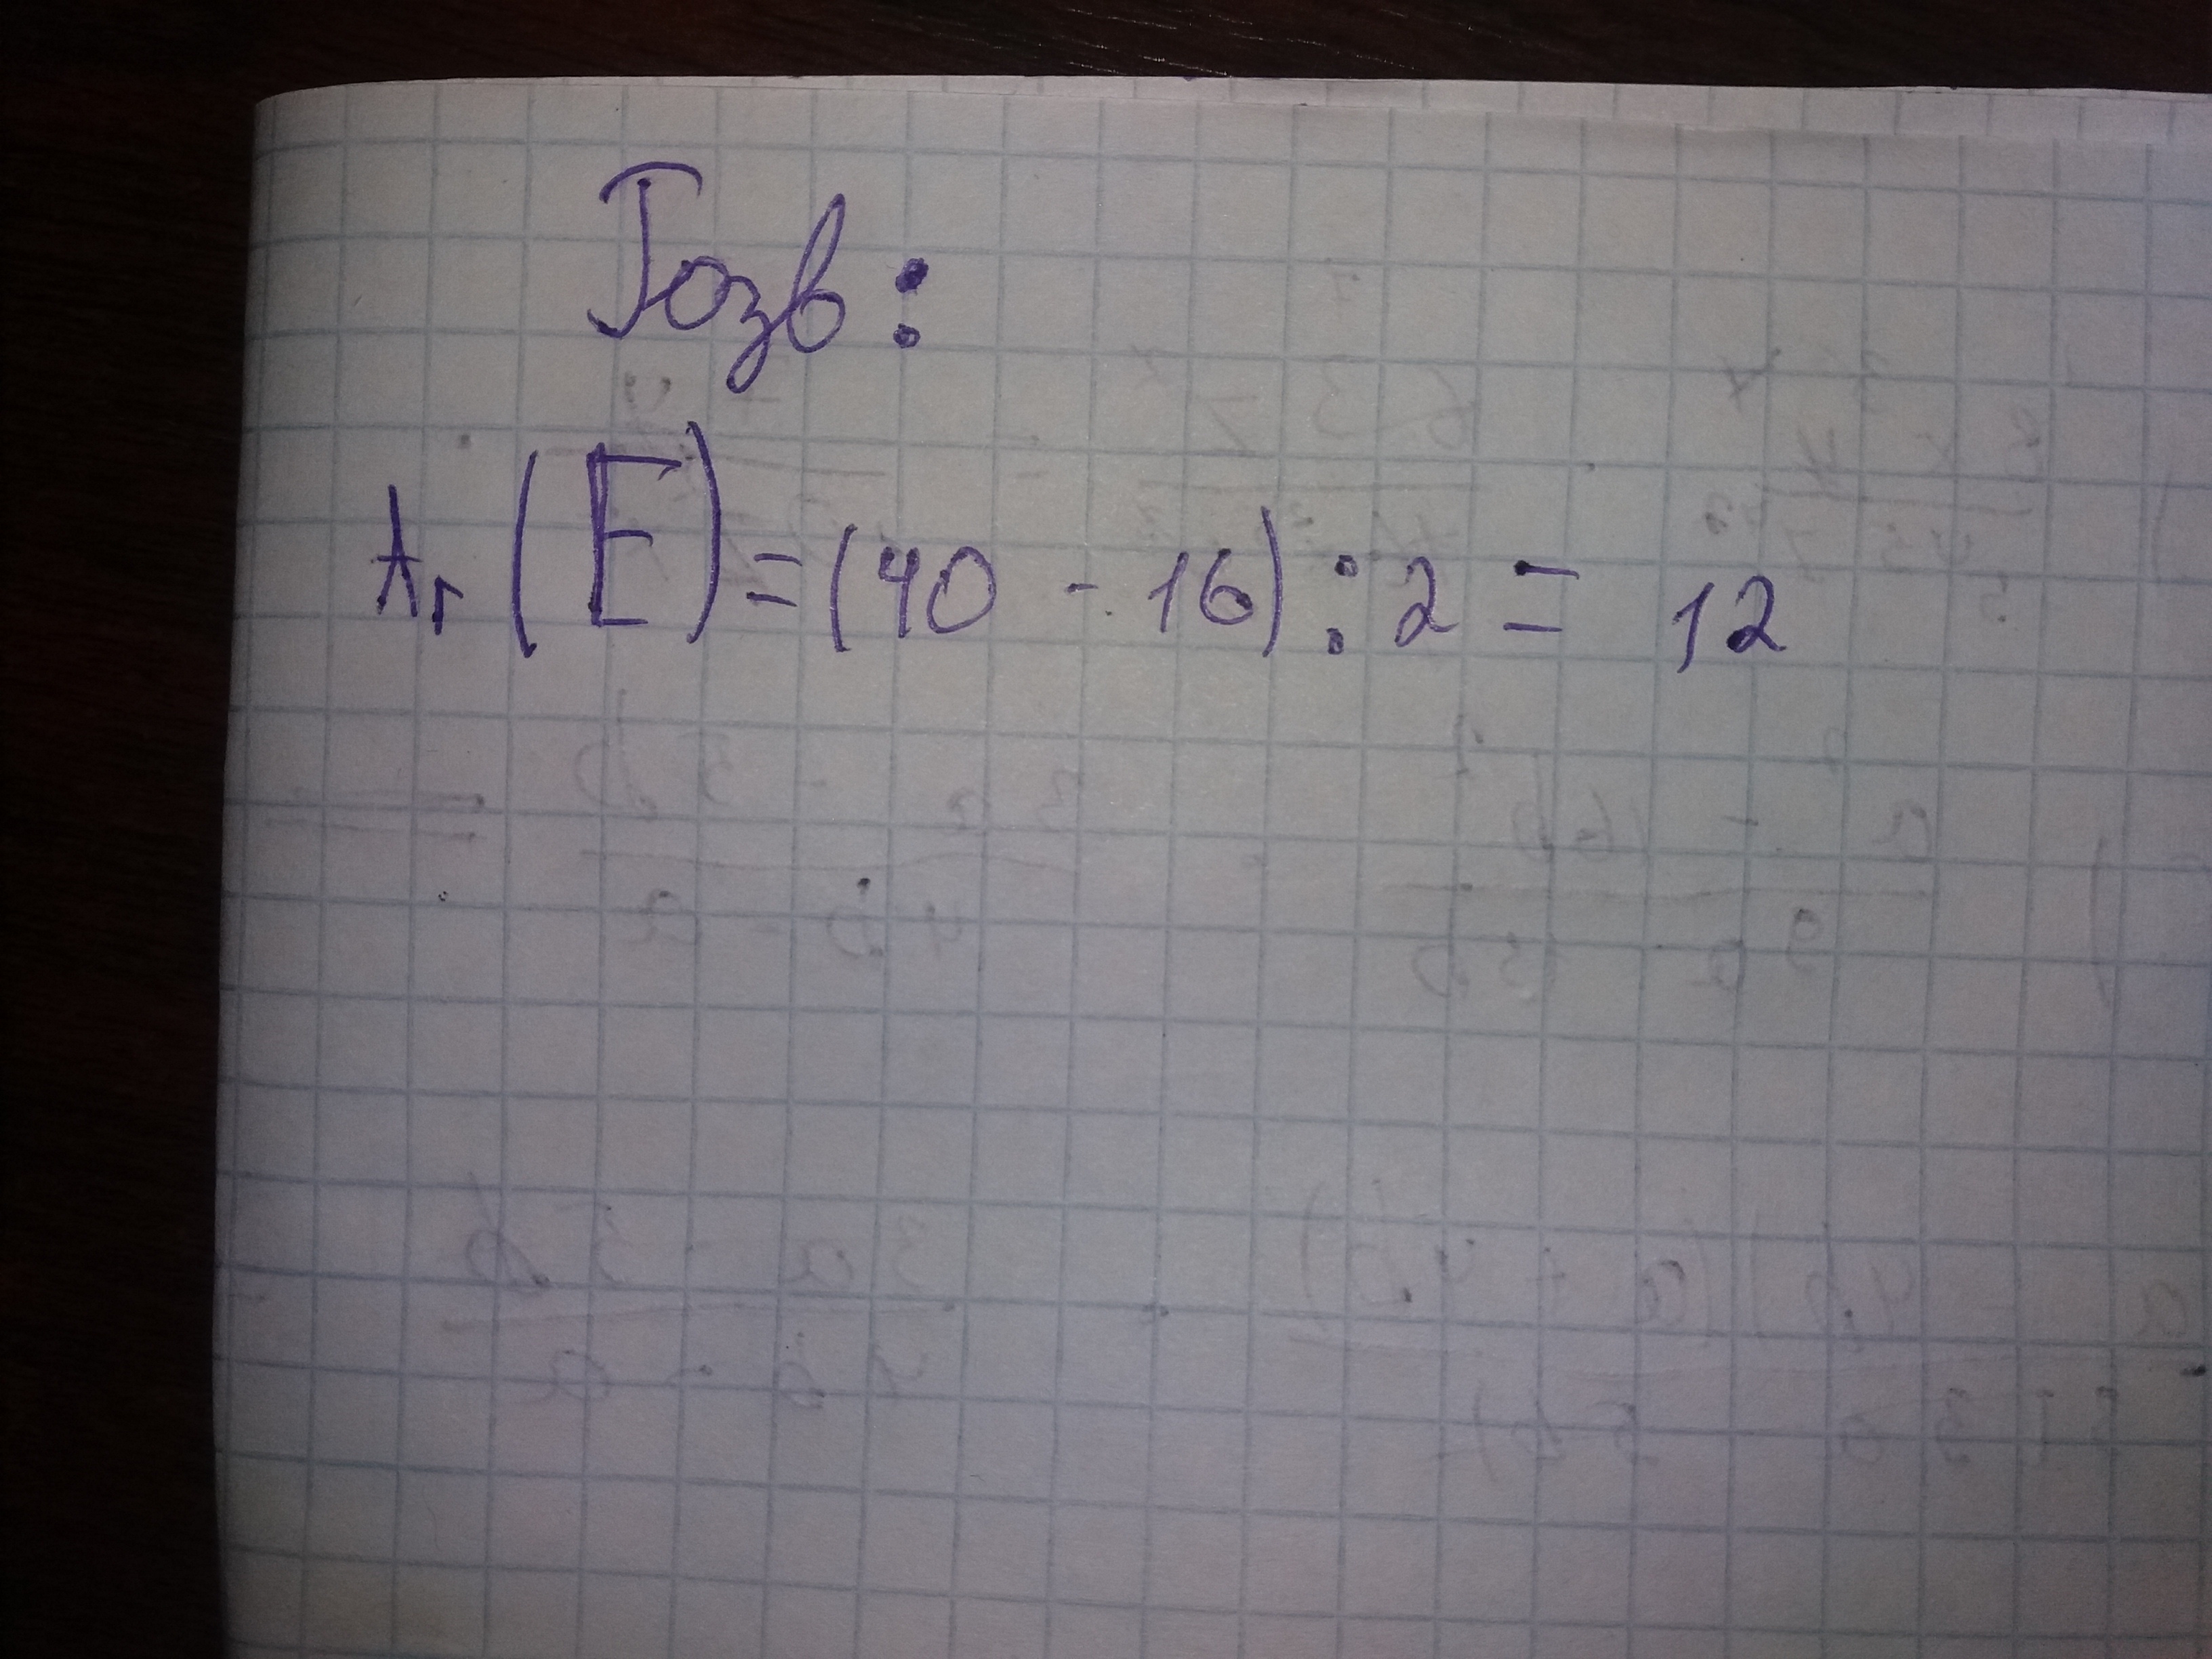 Розв:
Ar (E) = (40 - 16) : 2 = 12